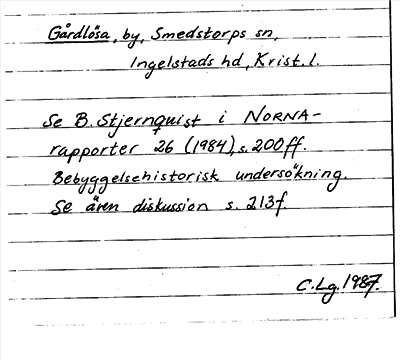 Gårdlösa, by, Smedstorps sn,
Ingelstads hd, Krist. l.
Se B. Stjernquist i NORNA-
rapporter 26 (1984), s. 200ff.
Bebyggelsehistorisk undersökning.
Se även diskussion s. 213f.
C. Lg. 1987.